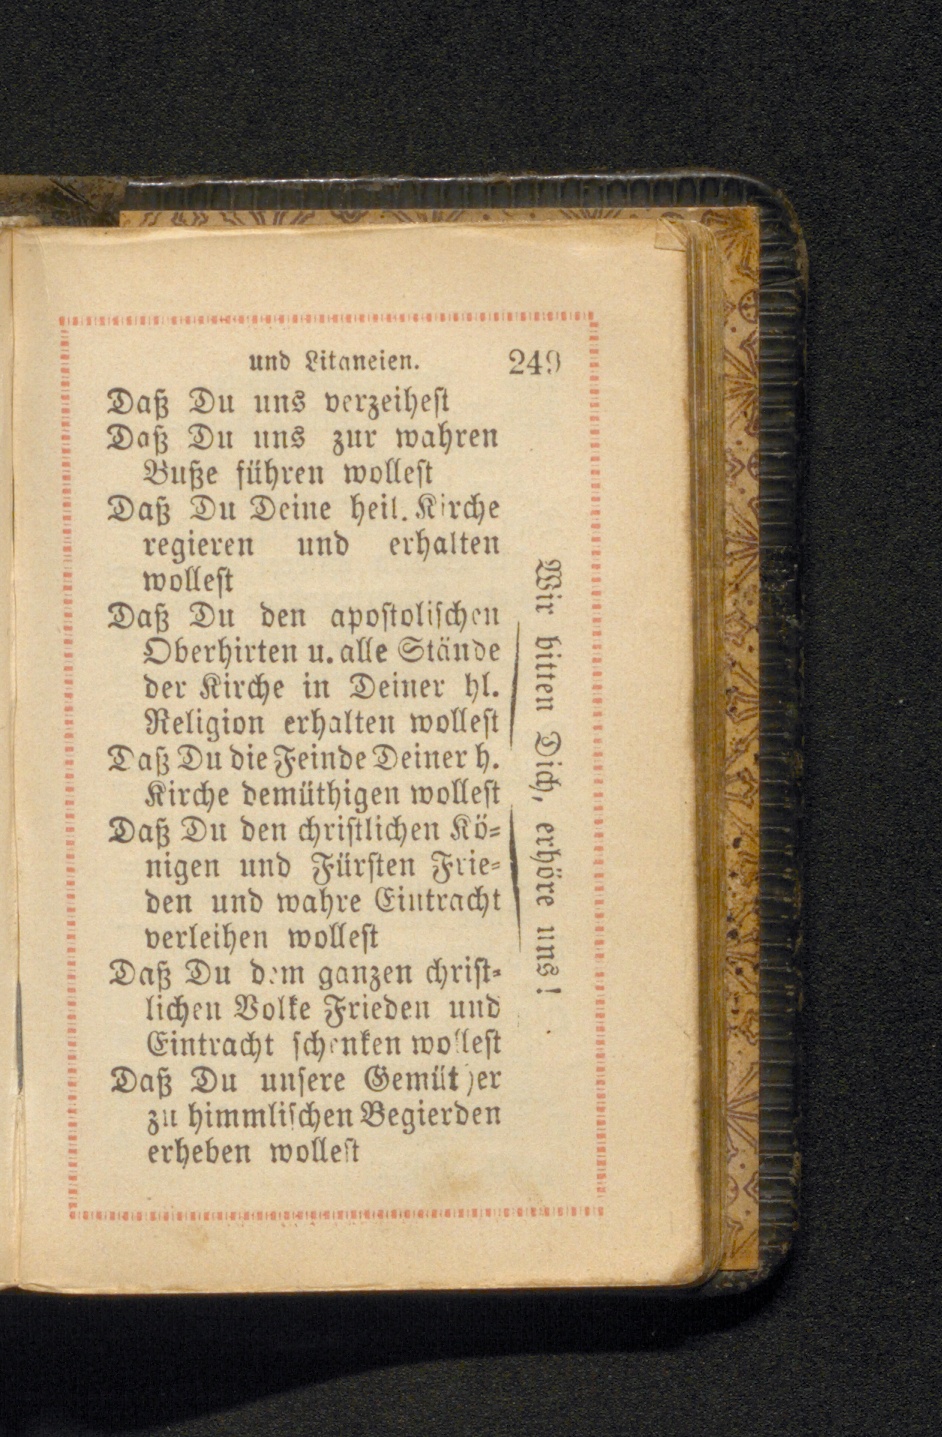 und Litaneien. 249
Daß Du uns verzeihest
Daß Du uns zur wahren
Buße führen wollest
Daß Du Deine heil. Kirche
regieren und erhalten
wollest
Daß Du den apostolischen
Oberhirten u. alle Stände
der Kirche in Deiner hl.
Religion erhalten wollest
Daß Du die Feinde Deiner h.
Kirche demüthigen wollest
Daß Du den christlichen Kö-
nigen und Fürsten Frie-
den und wahre Eintracht
verleihen wollest
Daß Du dem ganzen christ-
lichen Volke Frieden und
Eintracht schenken wollest
Daß Du unsere Gemüther
zu himmlischen Begierden
erheben wollest
Wir bitten Dich, erhöre uns!